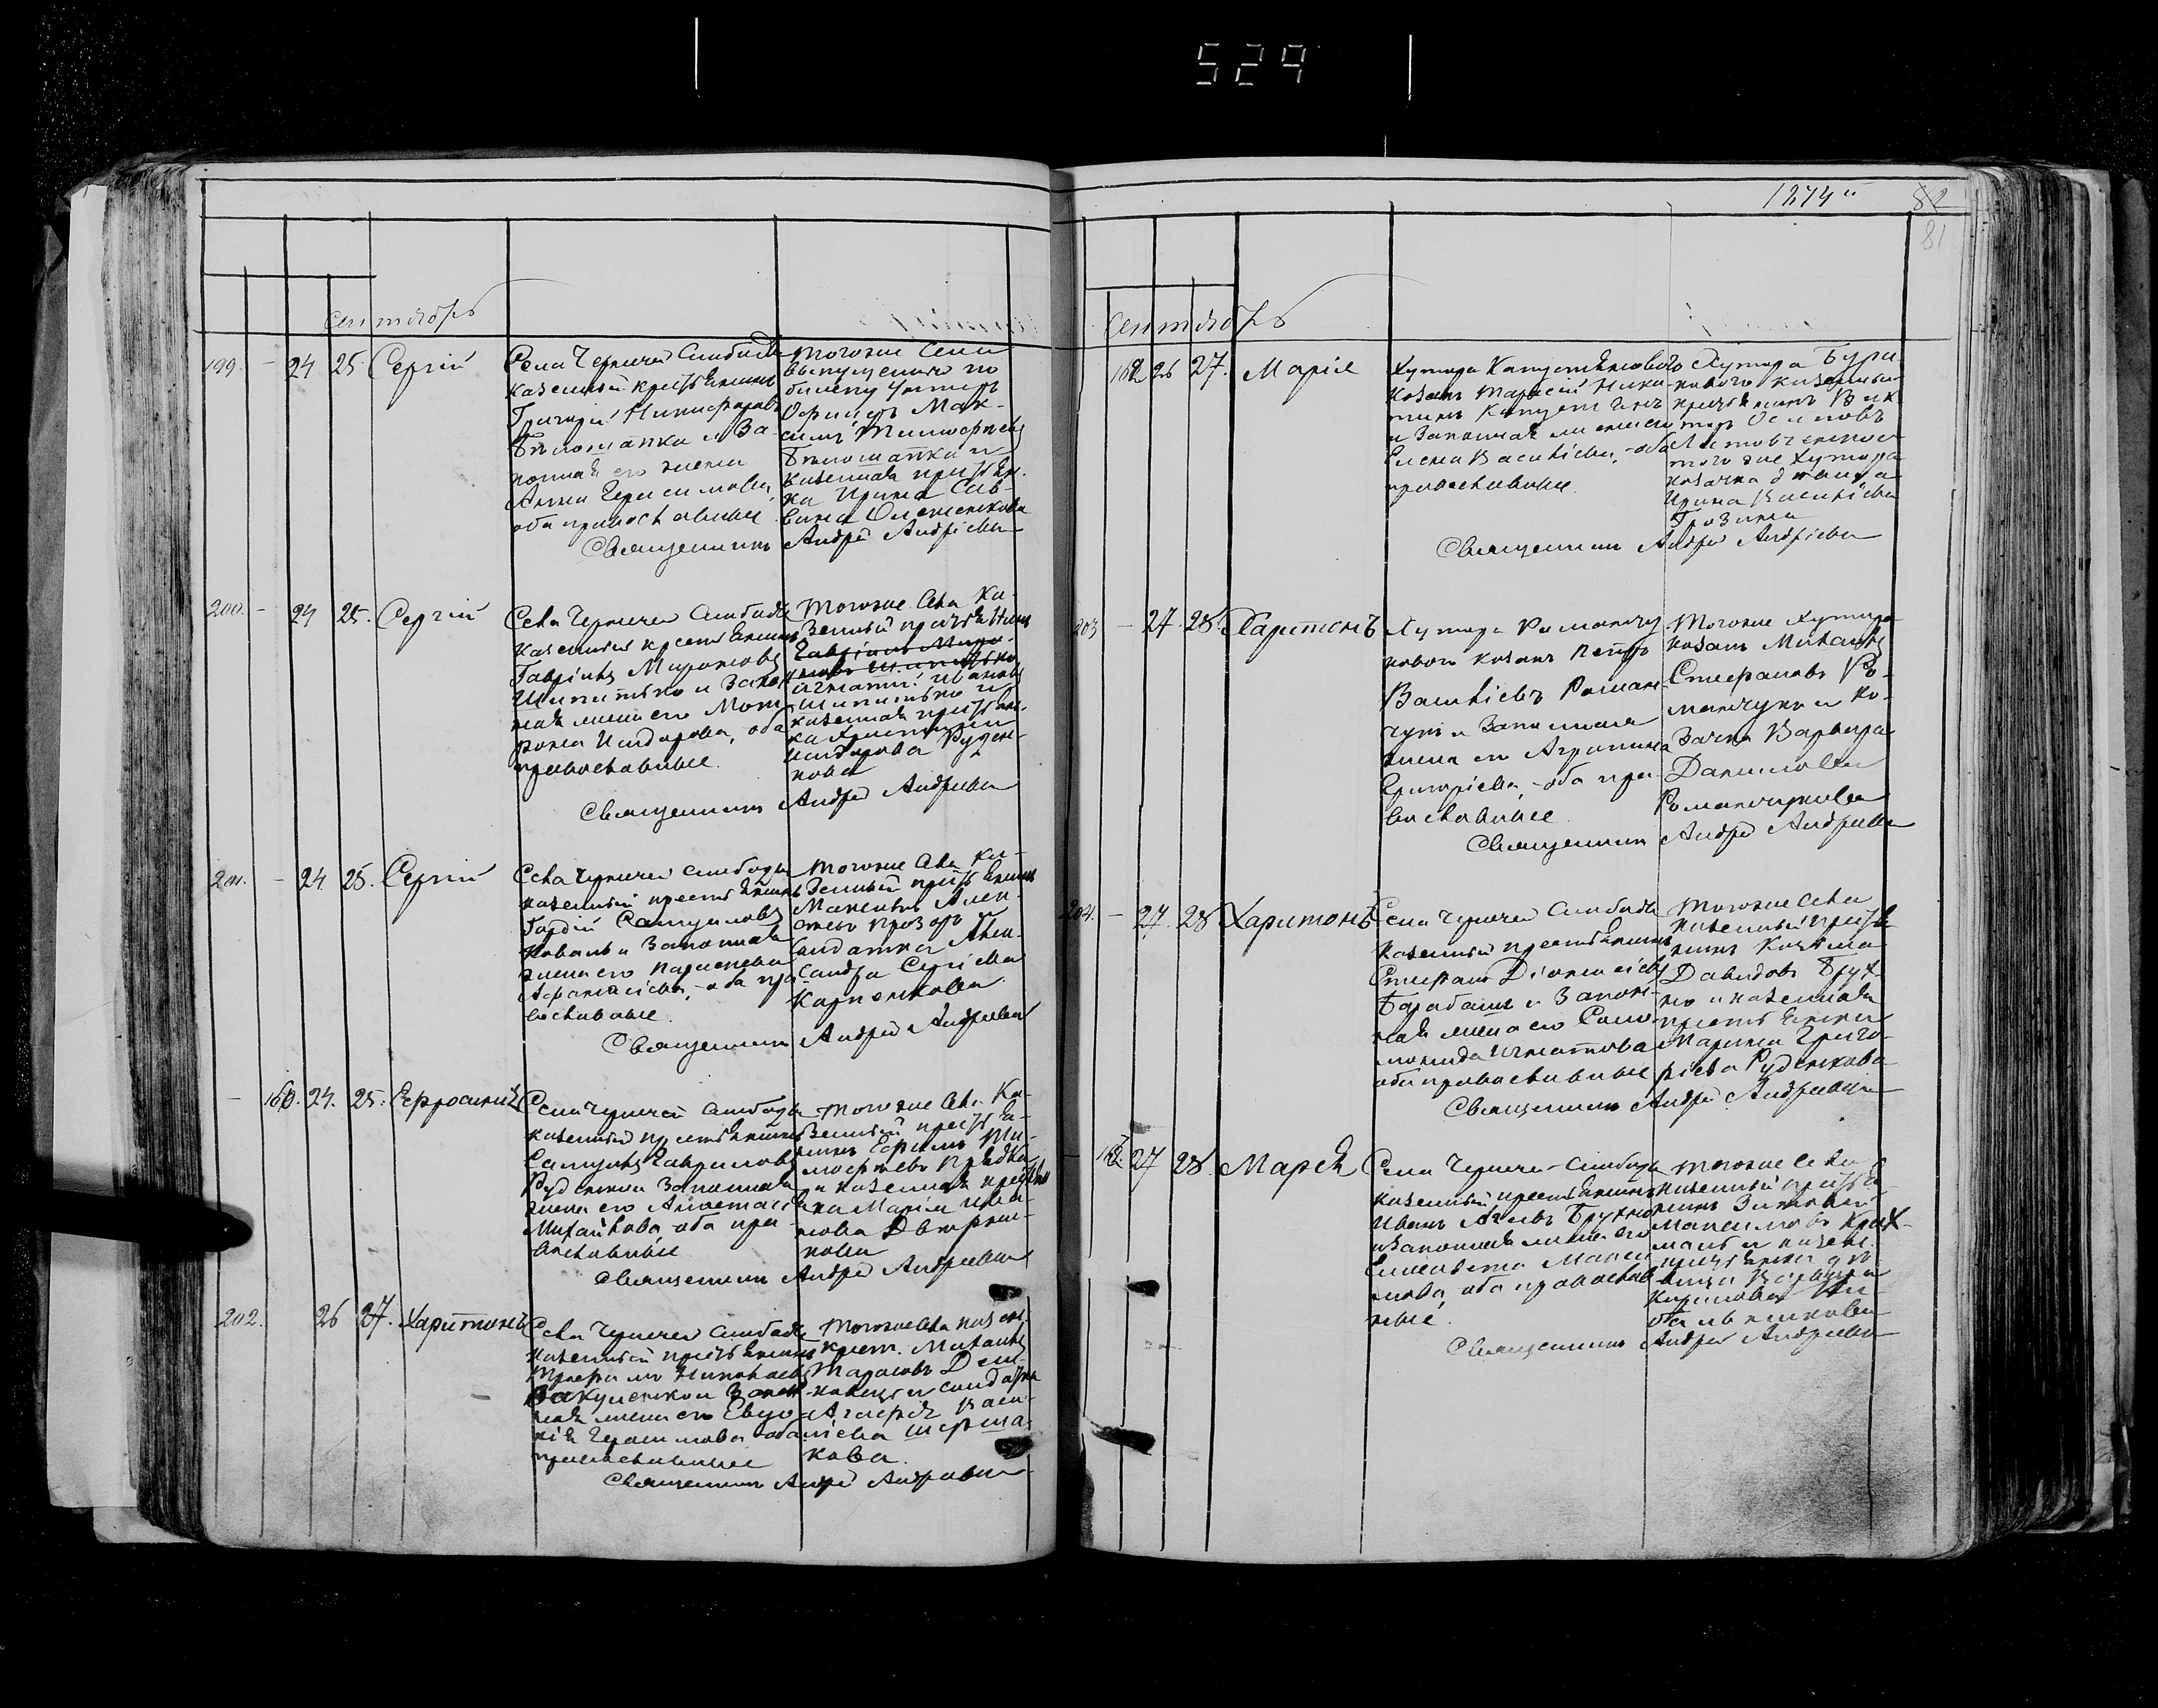 529
1274й
82
81
Сентябрь
199. - 24 25. Сергій
Села Черничей Слободы
казенный крестьянинъ
Григорій Никифоровъ
Бѣлошапка и За-
конная его жена
Анна Герасимова,
оба православные.
тогоже села
выпущеный по
билету Унтеръ
Офицеръ Мак-
симъ Тимофѣевъ
Бѣлошапка и
казенная крестьян-
ка Ирина Сав-
вина
Священникъ Андрей Андріевъ
200. - 24 25. Сергій
Села Черничей Слободы
казенный крестьянинъ
Гавріилъ Мироновъ
Шипитько и Закон-
ная жена его Мот-
рона Исидорова, оба
православные.
тогоже села Ка-
зенный крестьянинъ
Игнатій Ивановъ
Шипитько и
казенная крестьян-
ка
Исидорова Руден-
кова
Священникъ Андрей Андріевъ
201. - 24 25. Сергій
Села Черничей Слободы
казенный крестьянинъ
Гордій Самуиловъ
Коваль и Законная
жена его Параскева
Афанасіева, - оба пра-
вославные.
тогоже села Ка-
зенный крестьянинъ
и
Солдатка Алек-
сандра Сергіева
Карпенкова
Священникъ Андрей Андріевъ
- 160. 24. 25. Ефросинія
Села Черничей Слободы
казенный крестьянинъ
Самуилъ Гавриловъ
Руденко и Законная
жена его Анастасія
Михайлова, оба пра-
вославные
тогоже села Ка-
зенный крестья-
нинъ Ефимъ Ти-
мофѣевъ
и казенная крестьян-
ка Марія Ива-
нова
нова
Священникъ Андрей Андріевъ
202. 26 27. Харитонъ
Села Черничей Слободы
казенный крестьянинъ
Трофимъ Николаевъ
Вакуленко и Закон-
ная жена его Евдо-
кія Герасимова оба
православные
тогоже села казен.
крест. Михаилъ
Тарасовъ
и солдатка
Агафія Васи-
ліева Шерша-
кова.
Священникъ Андрей Андріевъ
Сентябрь
162 26 27. Марія
Хутора
козакъ Тарасій Ники-
тинъ
и Законная жена его
Елена Васильева, - оба
православные.
Хутора Бура-
кового казенный
крестьянинъ Вик-
торъ Осиповъ
Литовченко и
того же Хутора
козачка дѣвица
Ирина Васильева
Грозина
Священникъ Андрей Андріевъ
203 - 27. 28. Харитонъ
Хутора Романчу-
кового козакъ Петръ
Васильевъ Роман-
чукъ и Законная
жена его Агрипина
Григоріева, - оба пра-
вославные
Тогоже Хутора
козакъ Михаилъ
Стефановъ Ро-
манчукъ и Ко-
зачка Варвара
Данилова
Романчукова
Священникъ Андрей Андріевъ
204. - 27. 28 Харитонъ
Села Черничей Слободы
Казенный крестьянинъ
Стефанъ Діонисіевъ
Барабашъ и Закон-
ная жена его Соло-
монида Игнатова
оба православные
тогоже села
казенный крестья-
нинъ Козьма
Давидовъ Брух-
но и казенная
крестьянка
Марина Григо-
ріева Руденкова
Священникъ Андрей Андріевъ
27 28 Марія
Села Черничей Слободы
казенный крестьянинъ
Иванъ Брухно
и законная жена его
Елисавета Макси-
мова, оба православ-
ные.
тогоже села
казенный крестья-
нинъ Зиновій
Максимовъ Крах-
маль и казен.
крестьянка дѣ-
вица Варвара
Кирилова
Священникъ Андрей Андріевъ